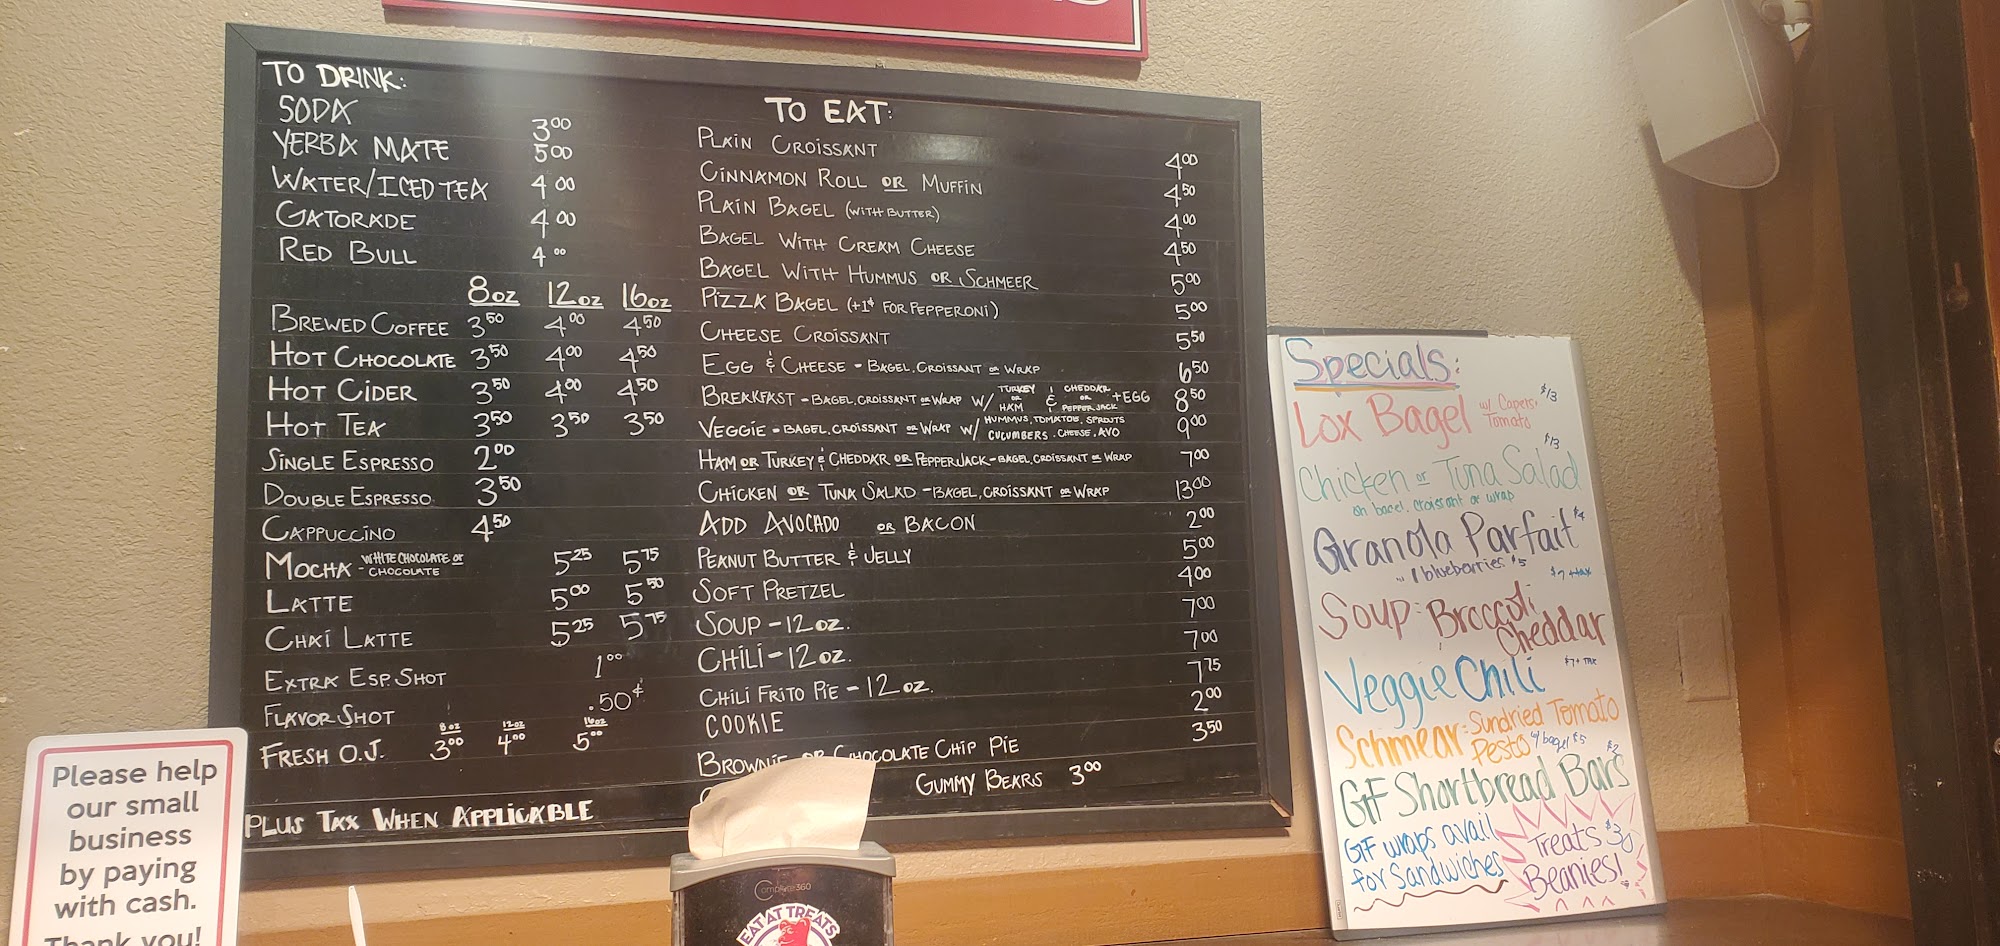 TO DRINK:
SODA 3.00
YERBA MATE 5.00
WATER/ICED TEA 4.00
GATORADE 4.00
RED BULL 4.00
8oz 12oz 16oz
BREWED COFFEE 3.50 4.00 4.50
HOT CHOCOLATE 3.50 4.00 4.50
HOT CIDER 3.50 4.00 4.50
HOT TEA 3.50 3.50 3.50
SINGLE ESPRESSO 2.00
DOUBLE ESPRESSO 3.50
CAPPUCCINO 4.50
MOCHA - WHITE CHOCOLATE or CHOCOLATE 5.25 5.75
LATTE 5.00 5.50
CHAI LATTE 5.25 5.75
EXTRA ESP. SHOT 1.00
FLAVOR SHOT .50¢
8oz 12oz 16oz
FRESH O.J. 3.00 4.00 5.00
PLUS TAX WHEN APPLICABLE
TO EAT:
PLAIN CROISSANT 4.00
CINNAMON ROLL OR MUFFIN 4.50
PLAIN BAGEL (WITH BUTTER) 4.00
BAGEL WITH CREAM CHEESE 4.50
BAGEL WITH HUMMUS OR SCHMEER 5.00
PIZZA BAGEL (+1$ FOR PEPPERONI) 5.00
CHEESE CROISSANT 5.50
EGG & CHEESE - BAGEL, CROISSANT OR WRAP 6.50
BREAKFAST - BAGEL, CROISSANT OR WRAP W/ TURKEY OR HAM & CHEDDAR OR PEPPER JACK + EGG 8.50
VEGGIE - BAGEL, CROISSANT OR WRAP W/ HUMMUS, TOMATOE, SPROUTS CUCUMBERS, CHEESE, AVO 9.00
HAM OR TURKEY & CHEDDAR OR PEPPERJACK - BAGEL, CROISSANT OR WRAP 7.00
CHICKEN OR TUNA SALAD - BAGEL, CROISSANT OR WRAP 13.00
ADD AVOCADO OR BACON 2.00
PEANUT BUTTER & JELLY 5.00
SOFT PRETZEL 4.00
SOUP - 12 OZ. 7.00
CHILI - 12 OZ. 7.00
CHILI FRITO PIE - 12 OZ. 7.75
COOKIE 2.00
BROWNIE OR CHOCOLATE CHIP PIE 3.50
GUMMY BEARS 3.00
Specials:
Lox Bagel w/ Capers, Tomato $13
Chicken or Tuna Salad $13
on bagel, croissant or wrap
Granola Parfait $4
w/ blueberries $5
$7 + tax
Soup: Broccoli Cheddar
Veggie Chili $7 + TAX
Schmear: Sundried Tomato
Pesto w/ bagel $5
$2
GF Shortbread Bars
GF wraps avail
for Sandwiches
Treats $30
Beanies!
Please help
our small
business
by paying
with cash.
Thank you!
360
EAT AT TREATS